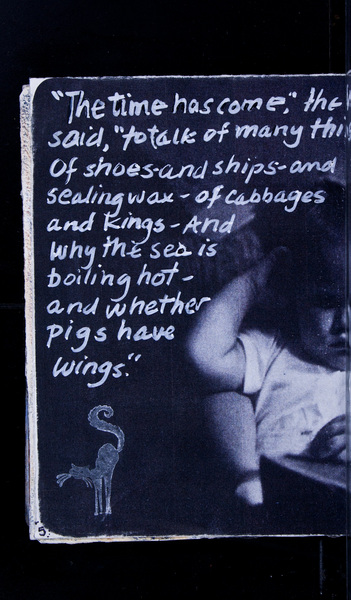 "The time has come," the
said, "to talk of many thi
Of shoes-and ships-and
sealing wax - of cabbages
and kings - And
why the sea is
boiling hot -
and whether
pigs have
wings."
5